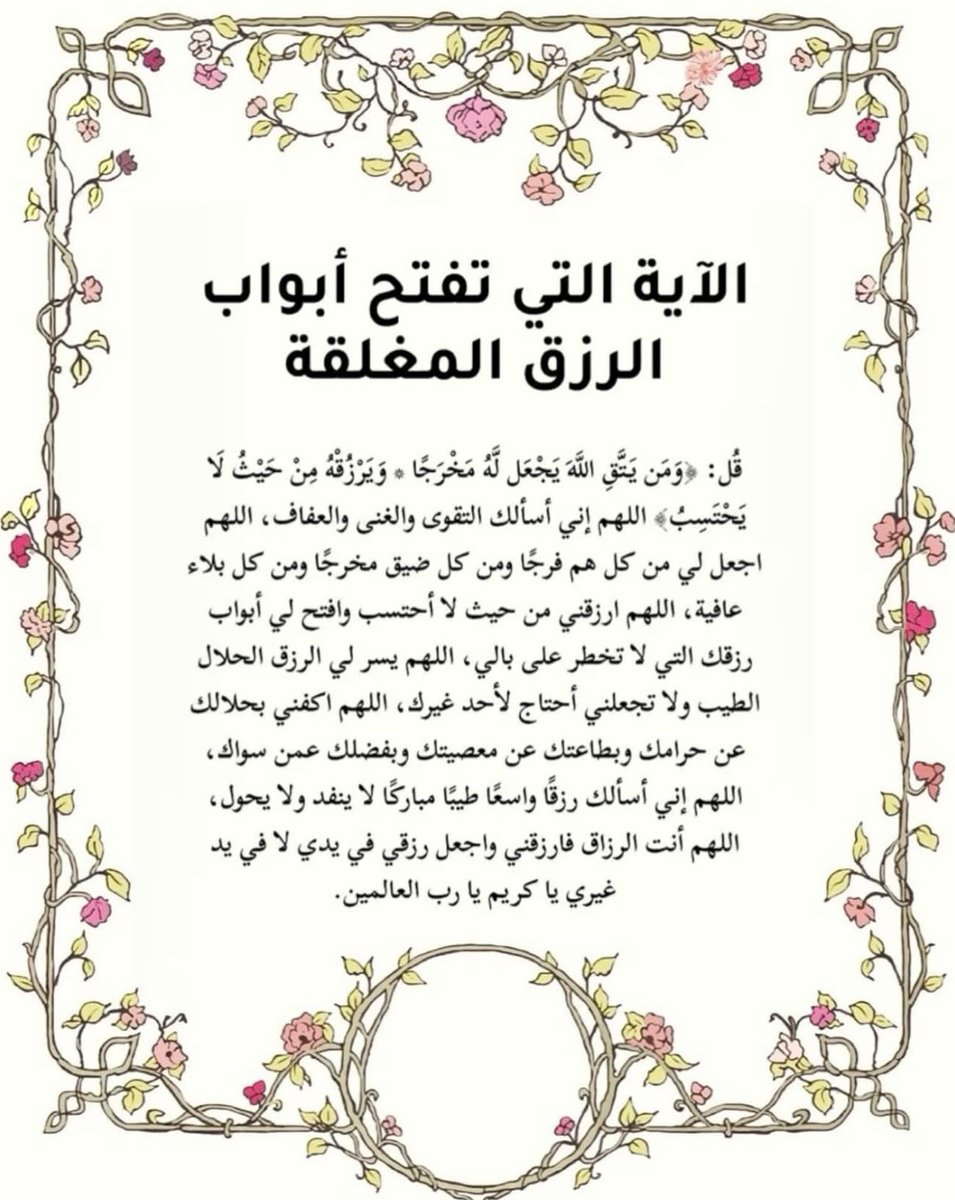 الآية التي تفتح أبواب
الرزق المغلقة
قُل: ﴿وَمَن يَتَّقِ اللَّهَ يَجْعَل لَّهُ مَخْرَجًا * وَيَرْزُقْهُ مِنْ حَيْثُ لَا
يَحْتَسِبُ﴾ اللهم إني أسألك التقوى والغنى والعفاف، اللهم
اجعل لي من كل هم فرجًا ومن كل ضيق مخرجًا ومن كل بلاء
عافية، اللهم ارزقني من حيث لا أحتسب وافتح لي أبواب
رزقك التي لا تخطر على بالي، اللهم يسر لي الرزق الحلال
الطيب ولا تجعلني أحتاج لأحد غيرك، اللهم اكفني بحلالك
عن حرامك وبطاعتك عن معصيتك وبفضلك عمن سواك،
اللهم إني أسألك رزقًا واسعًا طيبًا مباركًا لا ينفد ولا يحول،
اللهم أنت الرزاق فارزقني واجعل رزقي في يدي لا في يد
غيري يا كريم يا رب العالمين.